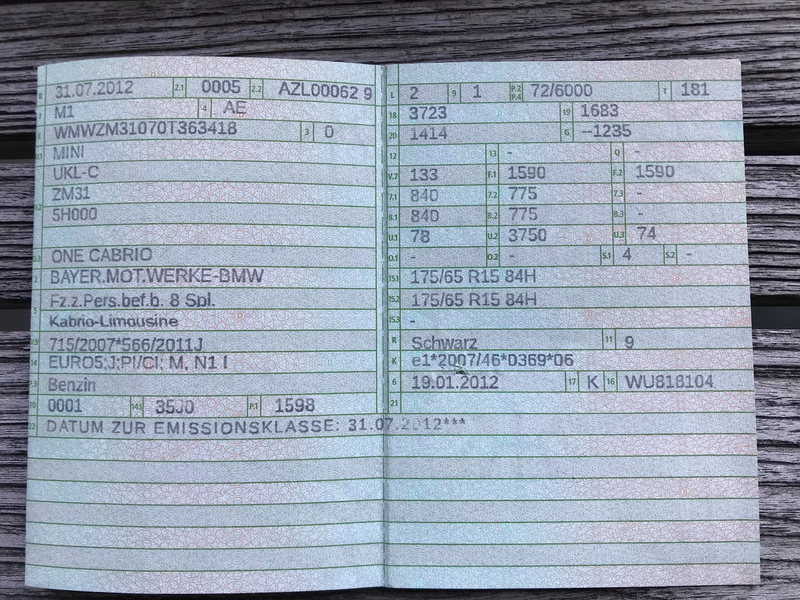 31.07.2012 2.1 0005 2.2 AZL00062 9
M1 4 AE
WMWZM31070T363418 3 0
MINI
UKL-C
ZM31
5H000
ONE CABRIO
BAYER.MOT.WERKE-BMW
Fz.z.Pers.bef.b. 8 Spl.
Kabrio-Limousine
715/2007*566/2011J
EURO5;J;PI/CI; M, N1 I
Benzin
0001 14.1 3500 P.1 1598
DATUM ZUR EMISSIONSKLASSE: 31.07.2012***
L 2 9 1 P.2 P.4 72/6000 T 181
18 3723 19 1683
20 1414 G --1235
12 - 13 - Q -
V.7 133 F.1 1590 F.2 1590
7.1 840 7.2 775 7.3 -
8.1 840 8.2 775 8.3 -
U.1 78 U.2 3750 U.3 74
O.1 - O.2 - S.1 4 S.2 -
15.1 175/65 R15 84H
15.2 175/65 R15 84H
15.3 -
R Schwarz 11 9
K e1*2007/46*0369*06
6 19.01.2012 17 K 16 WU818104
21